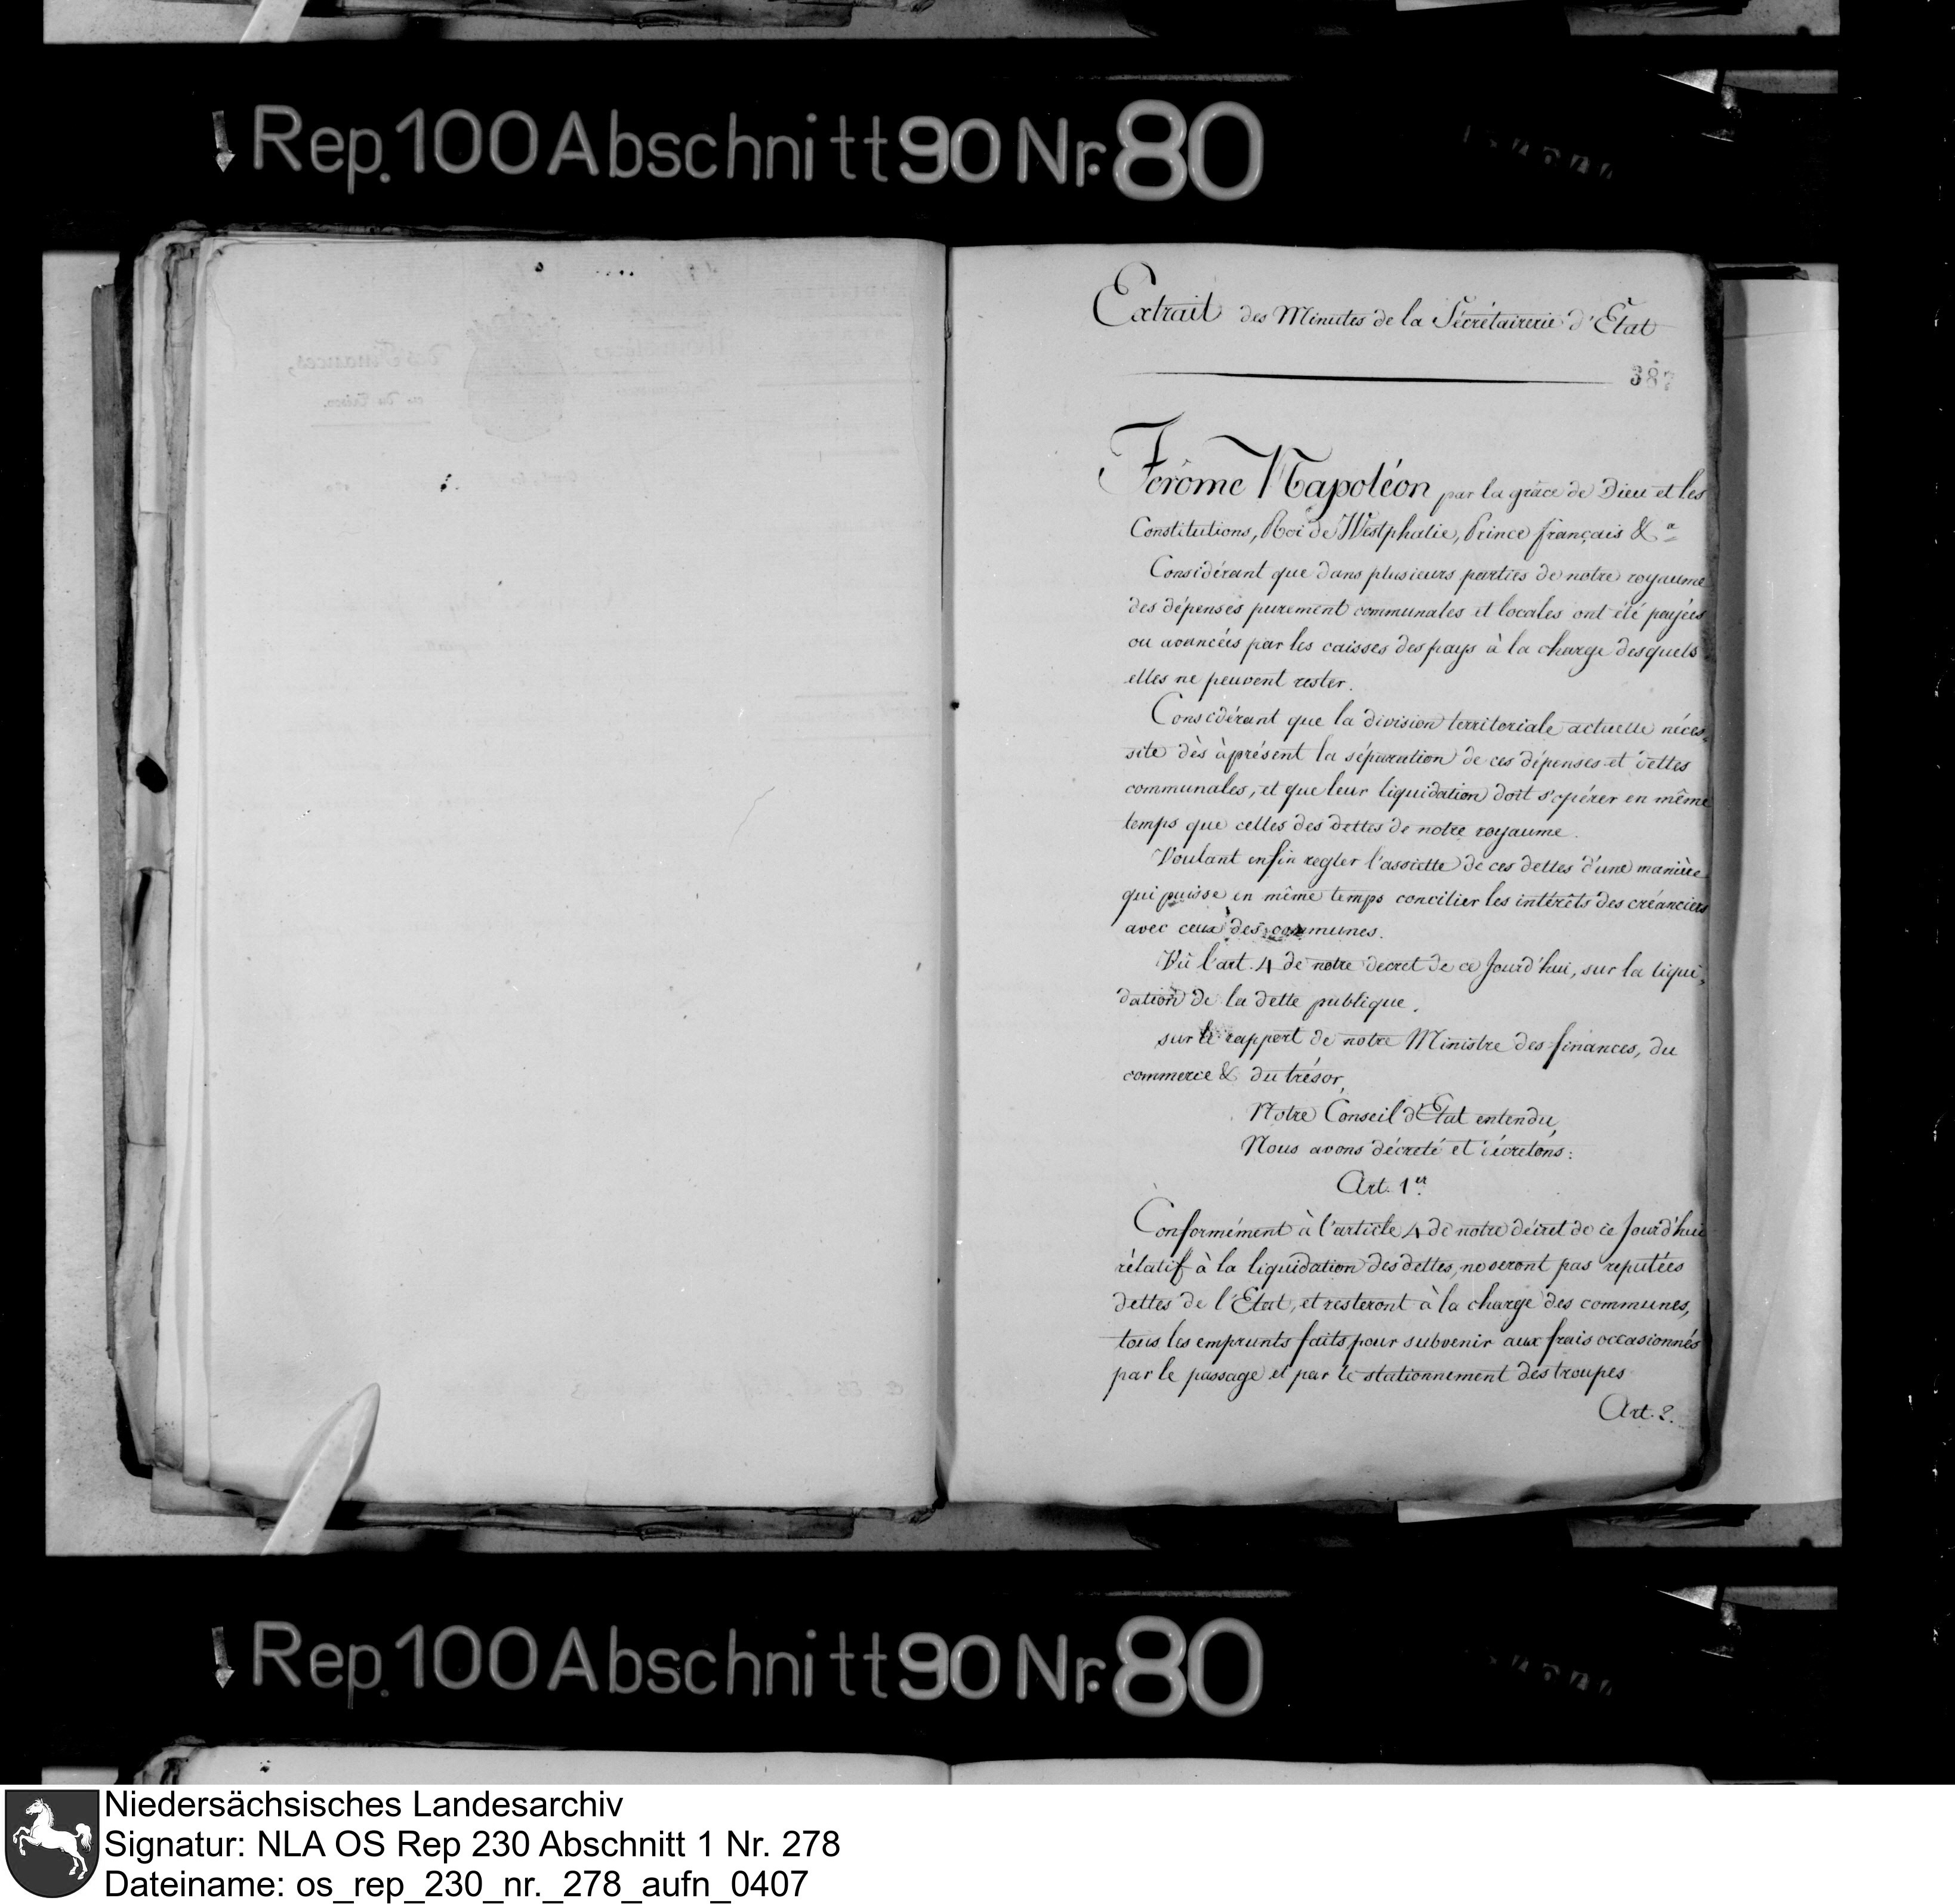 Rep. 100 Abschnitt 90 Nr. 80
Extrait des Minutes de la Sécrétairerie d'Etat
387
Jérôme Napoléon par la grâce de Dieu et les
Constitutions, Roi de Westphalie, Prince français &a
Considérant que dans plusieurs parties de notre royaume
des dépenses purement communales et locales ont été payées
ou avancées par les caisses des pays à la charge desquels
elles ne peuvent rester.
Considérant que la division territoriale actuelle néces-
site dès àprésent la séparation de ces dépenses et dettes
communales, et que leur liquidation doit s'opérer en même
temps que celles des dettes de notre royaume.
Voulant enfin regler l'assiette de ces dettes d'une manière
qui puisse en même temps concilier les intérêts des créanciers
avec ceux des communes.
Vû l'art. 4 de notre décret de ce Jourd'hui, sur la liqui-
dation de la dette publique.
sur le rapport de notre Ministre des finances, du
commerce & du trésor,
Notre Conseil d'Etat entendu,
Nous avons décreté et décretons:
Art. 1er
Conformément à l'article 4 de notre décret de ce Jourd'hui
rélatif à la liquidation des dettes, ne seront pas reputées
dettes de l'Etat, et resteront à la charge des communes,
tous les emprunts faits pour subvenir aux frais occasionnés
par le passage et par le stationnement des troupes
Art. 2.
Rep. 100 Abschnitt 90 Nr. 80
Niedersächsisches Landesarchiv
Signatur: NLA OS Rep 230 Abschnitt 1 Nr. 278
Dateiname: os_rep_230_nr._278_aufn_0407